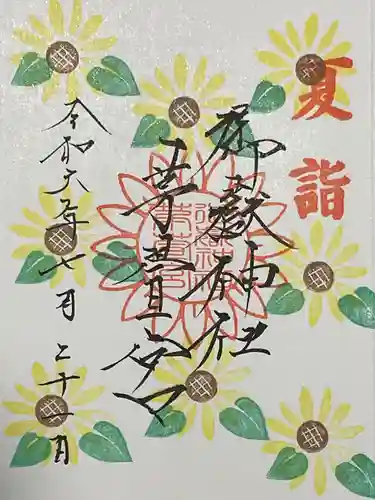 夏詣
御嶽神社
茅萱宮
令和六年七月二十一日